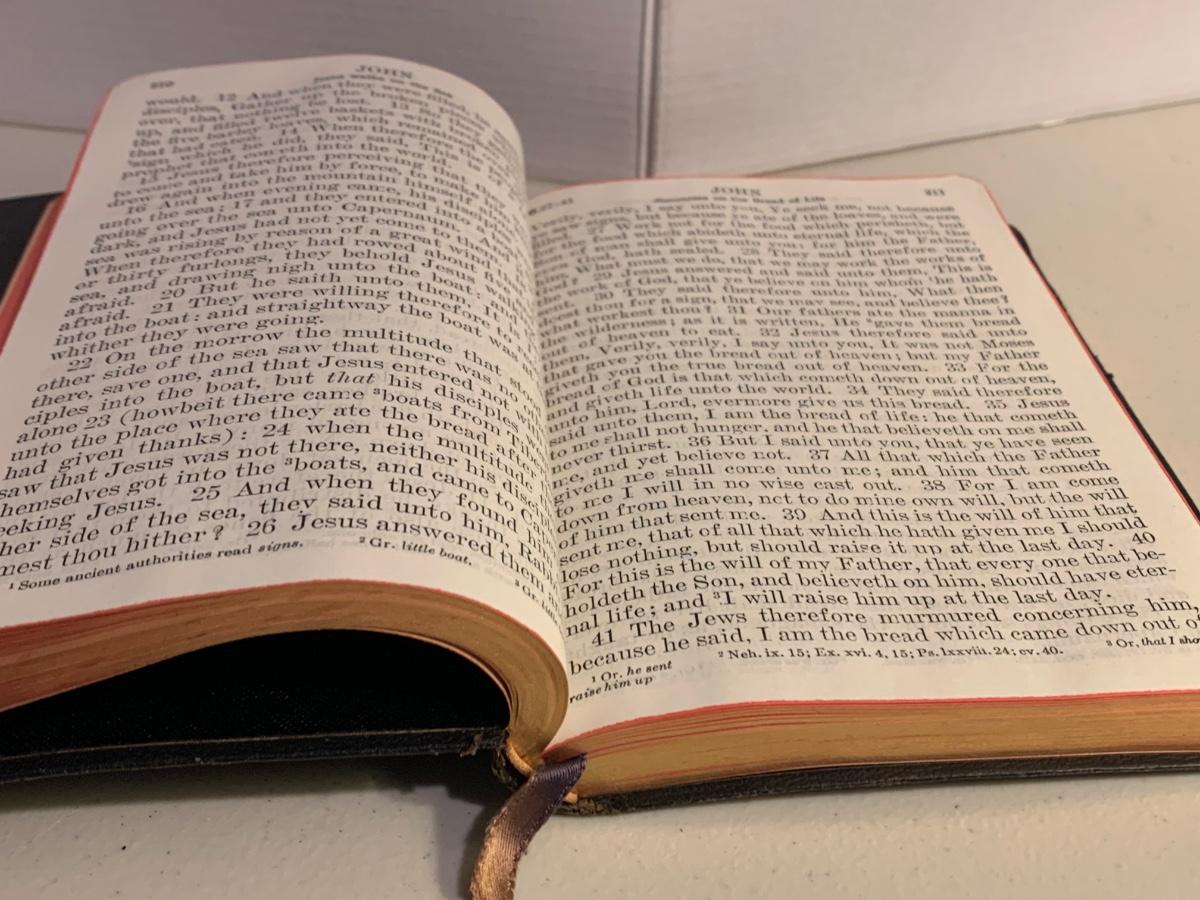 JOHN
would. 12 And when they were filled, he
disciples, Gather up the broken
over, that nothing be lost. 13 So they
up, and filled twelve baskets with broken
the five barley loaves, which remained
that had eaten. 14 When therefore the
¹sign which he did, they said, This is
prophet that cometh into the world.
15 Jesus therefore perceiving that they
to come and take him by force, to make
drew again into the mountain himself
16 And when evening came, his disciples
unto the sea; 17 and they entered into a boat
going over the sea unto Capernaum. And
dark, and Jesus had not yet come to them.
sea was rising by reason of a great wind
When therefore they had rowed about
or thirty furlongs, they behold Jesus
sea, and drawing nigh unto the boat: and
afraid. 20 But he saith unto them, It is I
afraid. 21 They were willing therefore to
into the boat: and straightway the boat was
whither they were going.
22 On the morrow the multitude that stood
other side of the sea saw that there was no
there, save one, and that Jesus entered not
ciples into the boat, but that his disciples
alone 23 (howbeit there came ³boats from
unto the place where they ate the bread after
had given thanks): 24 when the multitude
saw that Jesus was not there, neither his
hemselves got into the ³boats, and came to
eeking Jesus. 25 And when they found him
her side of the sea, they said unto him,
mest thou hither? 26 Jesus answered them
¹ Some ancient authorities read signs. ² Gr. little boat.
³ Gr.
JOHN
Verily, verily, I say unto you, Ye seek me, not because
ye saw signs, but because ye ate of the loaves, and were
filled. 27 Work not for the food which perisheth, but
for the food which abideth unto eternal life, which the
Son of man shall give unto you: for him the Father,
even God, hath sealed. 28 They said therefore unto
him, What must we do, that we may work the works of
God? 29 Jesus answered and said unto them, This is
the work of God, that ye believe on him whom ¹he hath
sent. 30 They said therefore unto him, What then
doest thou for a sign, that we may see, and believe thee?
what workest thou? 31 Our fathers ate the manna in
the wilderness; as it is written, He ²gave them bread
out of heaven to eat. 32 Jesus therefore said unto
them, Verily, verily, I say unto you, It was not Moses
that gave you the bread out of heaven; but my Father
giveth you the true bread out of heaven. 33 For the
bread of God is that which cometh down out of heaven,
and giveth life unto the world. 34 They said therefore
unto him, Lord, evermore give us this bread. 35 Jesus
said unto them, I am the bread of life: he that cometh
to me shall not hunger, and he that believeth on me shall
never thirst. 36 But I said unto you, that ye have seen
me, and yet believe not. 37 All that which the Father
giveth me shall come unto me; and him that cometh
to me I will in no wise cast out. 38 For I am come
down from heaven, not to do mine own will, but the will
of him that sent me. 39 And this is the will of him that
sent me, that of all that which he hath given me I should
lose nothing, but should raise it up at the last day. 40
For this is the will of my Father, that every one that be-
holdeth the Son, and believeth on him, should have eter-
nal life; and ³I will raise him up at the last day.
41 The Jews therefore murmured concerning him,
because he said, I am the bread which came down out of
¹ Or, he sent ² Neh. ix. 15; Ex. xvi. 4, 15; Ps. lxxviii. 24; cv. 40. ³ Or, that I sho
raise him up